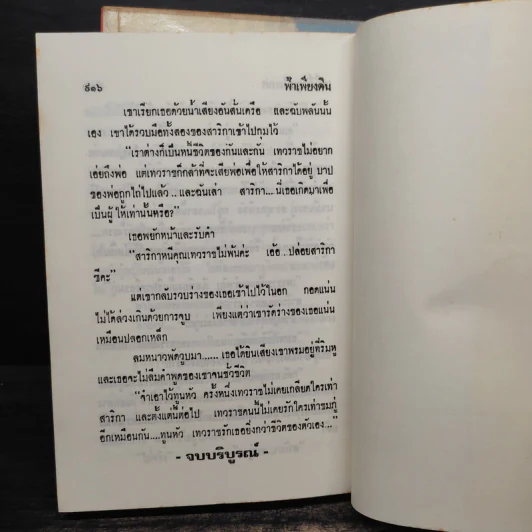 ๙๑๖ ฟ้าเพียงดิน
เขาเรียกเธอด้วยน้ำเสียงอันสั่นเครือ และฉับพลันนั้น
เอง เขาได้รวบมือทั้งสองของสาริกาเข้าไปกุมไว้
“เราต่างก็เป็นหนี้ชีวิตของกันและกัน เทวราชไม่อยาก
เอ่ยถึงพ่อ แต่เทวราชก็กล้าที่จะเสียพ่อเพื่อให้สาริกาได้อยู่ บาป
ของพ่อถูกไถ่ไปแล้ว..และฉันเล่า สาริกา...นี่เธอเกิดมาเพื่อ
เป็นผู้ให้เท่านั้นหรือ?”
เธอพยักหน้าและรับคำ
“สาริกาหนีคุณเทวราชไม่พ้นค่ะ เอ้อ..ปล่อยสาริกา
ซีคะ”
แต่เขากลับรวบร่างของเธอเข้าไปไว้ในอก กอดแน่น
ไม่ได้ล่วงเกินด้วยการจูบ เพียงแต่ว่าเขารัดร่างของเธอแน่น
เหมือนปลอกเหล็ก
ลมหนาวพัดวูบมา......เธอได้ยินเสียงเขาพรมอยู่ที่ริมหู
และเธอจะไม่ลืมคำพูดของเขาจนชั่วชีวิต
“จำเอาไว้ทูนหัว ครั้งหนึ่งเทวราชไม่เคยเกลียดใครเท่า
สาริกา และตั้งแต่นี้ต่อไป เทวราชคนนี้ไม่เคยรักใครเท่าชมภู่
อีกเหมือนกัน....ทูนหัว เทวราชรักเธอยิ่งกว่าชีวิตของตัวเอง...”
- จบบริบูรณ์ -